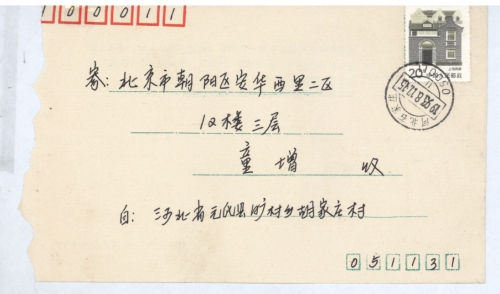 100011
寄:北京市朝阳区安华西里二区
12楼三层
童增 收
自:河北省元氏县矿村乡胡家庄村
051131
20
河北石家庄